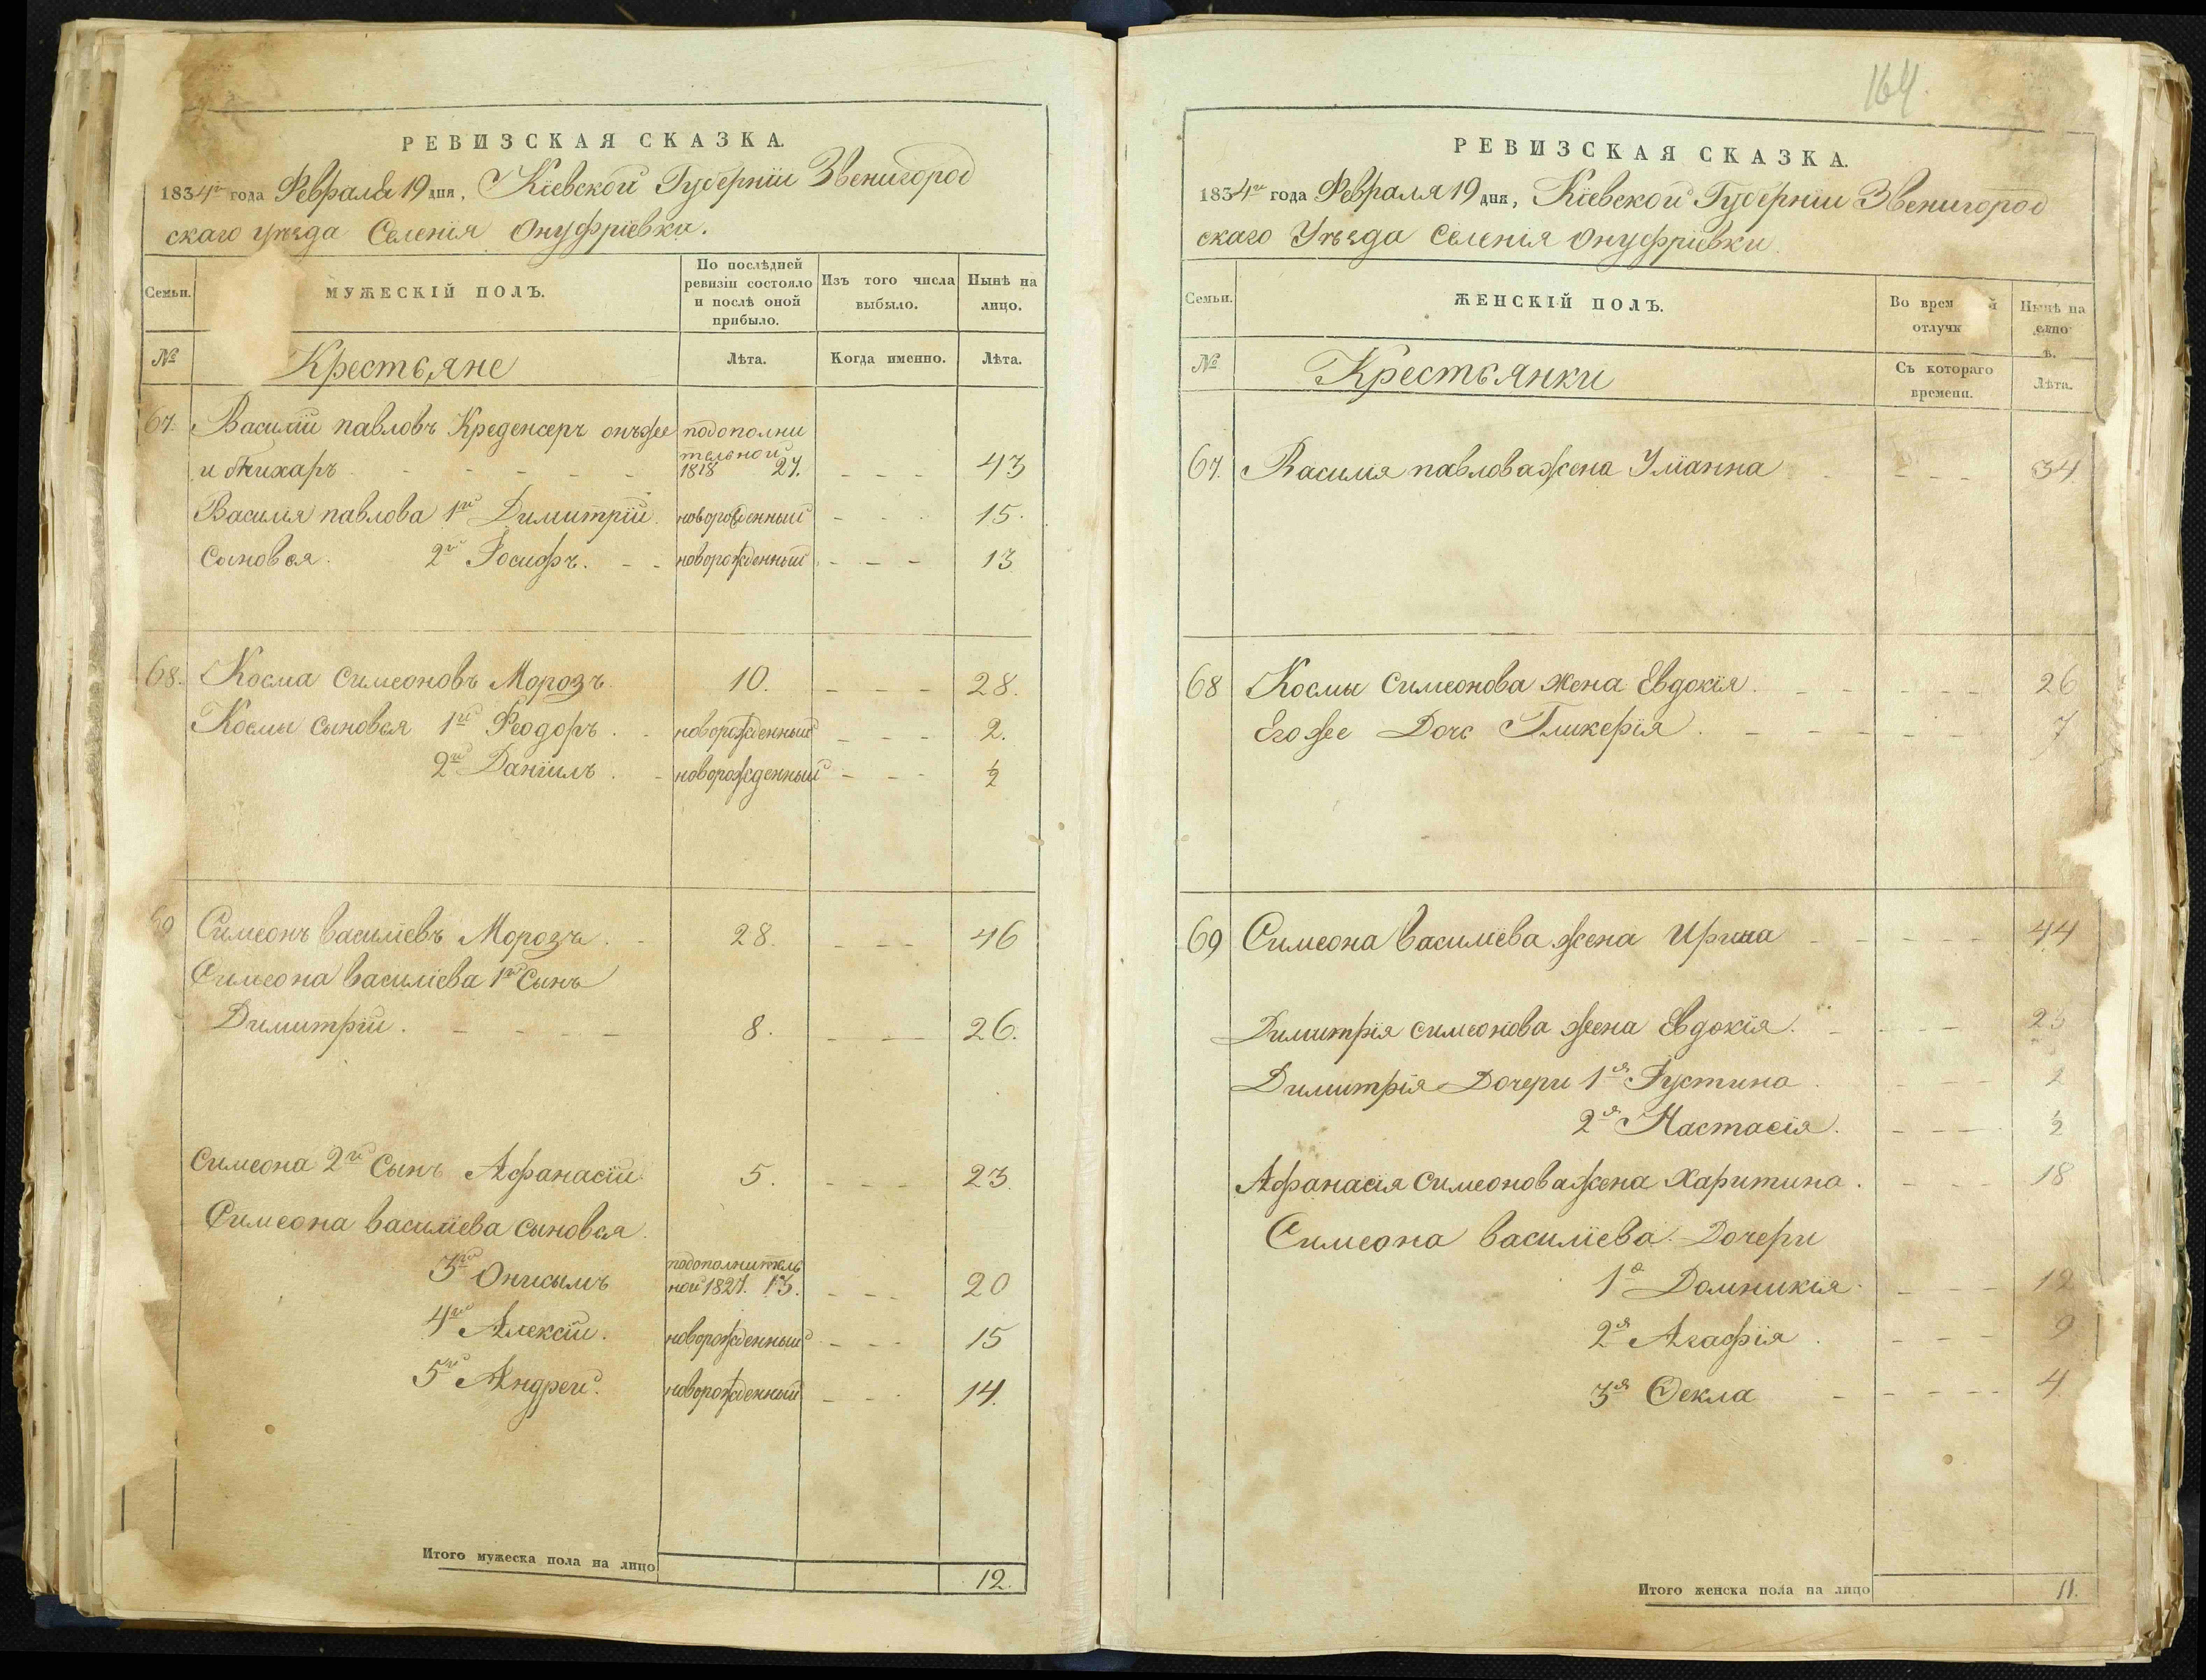 РЕВИЗСКАЯ СКАЗКА.
1834го года Февраля 19 дня, Кіевской Губерніи Звенигород
скаго уѣзда Селенія Онуфріевки.
Семьи.
МУЖЕСКІЙ ПОЛЪ.
По послѣдней ревизіи состояло и послѣ оной прибыло.
Изъ того числа выбыло.
Нынѣ на лицо.
№
Крестьяне
Лѣта.
Когда именно.
Лѣта.
67. Василій павловъ Креденсеръ онъже подополни
тельной
1818 27. - - - 43
Василія павлова 1й Димитрій. новорожденный - - - 15.
Сыновья. 2й Іосифъ. - - новорожденный - - - 13
68. Косма Симеоновъ Морозъ. 10. - - - 28.
Космы Сыновья 1й Феодоръ. - новорожденный - - - 2.
2й Даніилъ. - новорожденный - - - ½
69 Симеонъ Василіевъ Морозъ. - 28. - - - 46
Симеона Василіева 1й Сынъ
Димитрій. - - - - 8. - - - 26.
Симеона 2й Сынъ Афанасій. 5. - - - 23.
Симеона Василіева Сыновья.
3й Онисымъ подополнитель
ной 1827. 13. - - - 20
4й Алексій. новорожденный - - - 15
5й Андрей. новорожденный - - - 14.
Итого мужеска пола на лицо 12.
164
РЕВИЗСКАЯ СКАЗКА.
1834го года Февраля 19 дня, Кіевской Губерніи Звенигород
скаго Уѣзда Селенія Онуфріевки.
Семьи.
ЖЕНСКІЙ ПОЛЪ.
Во врем й отлучк
Нынѣ на лицо
№
Крестьянки
Съ котораго времени.
Лѣта.
67. Василія павлова жена Уліанна - - - 34
68 Космы Симеонова жена Евдокія. - - - - - 26
Егоже Дочь Гликерія. - - - - - 7
69 Симеона Василіева жена Ирина - - - - - 44
Димитрія Симеонова жена Евдокія. - - - - 23
Димитрія Дочери 1я Іустина. - - - 2
2я Настасія. - - - ½
Афанасія Симеонова жена Харитина. - - - 18
Симеона Василіева Дочери
1я Домникія. - - - 12
2я Агафія. - - - 9
3я Ѳекла - - - - 4.
Итого женска пола на лицо 11.